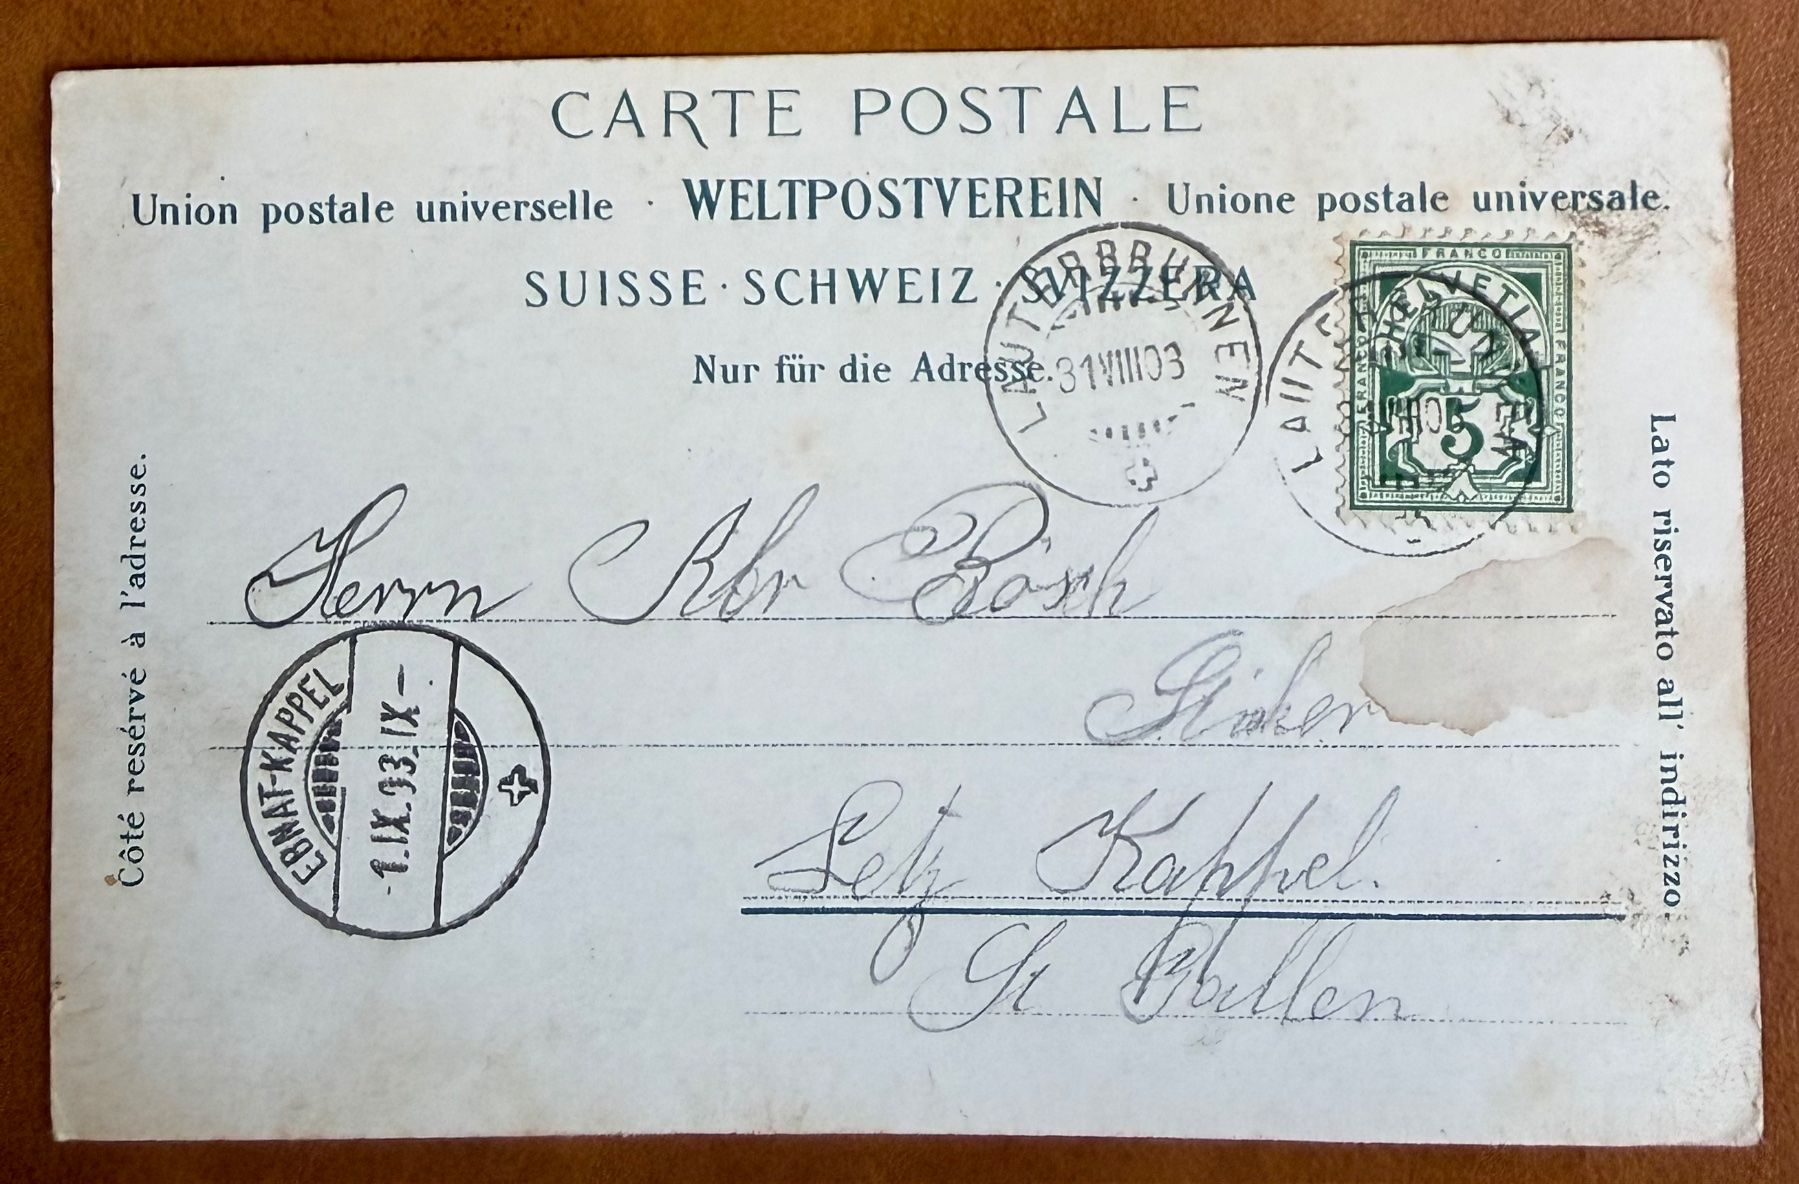 CARTE POSTALE
Union postale universelle · WELTPOSTVEREIN · Unione postale universale.
SUISSE · SCHWEIZ · SVIZZERA
Nur für die Adresse.
LAUTERBRUNNEN
31 VIII 03
FRANCO
HELVETIA
FRANCO
FRANCO
5
Côté resérvé à l'adresse.
Lato riservato all' indirizzo.
Herrn Rösch
EBNAT-KAPPEL
-1.IX.03.IX-
Letz Kappel.
St Gallen